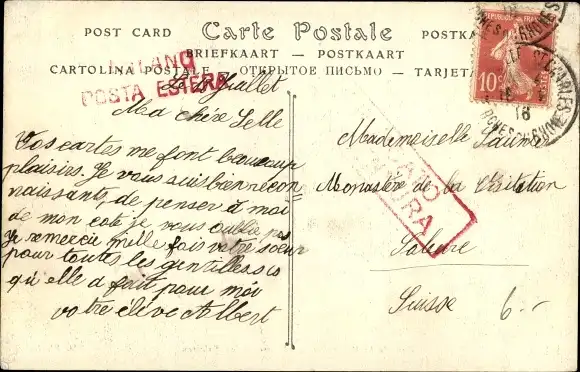 POST CARD Carte Postale POSTKA
BRIEFKAART — POSTKAART
CARTOLINA POSTALE — ОТКРЫТОЕ ПИСЬМО — TARJETA
MILANO
POSTA ESTERA
10c
16
Juillet
Ma chère Selle
Vos cartes me font beaucoup
plaisirs. Je vous suis bien recon
naissants de penser à moi
de mon coté je vous oublie pas
Je remercie mille fois votre soeur
pour toutes les gentillesses
qu'elle a fait pour moi
votre élève Albert
Mademoiselle
Monastère de la Visitation
Soleure
Suisse
6.-